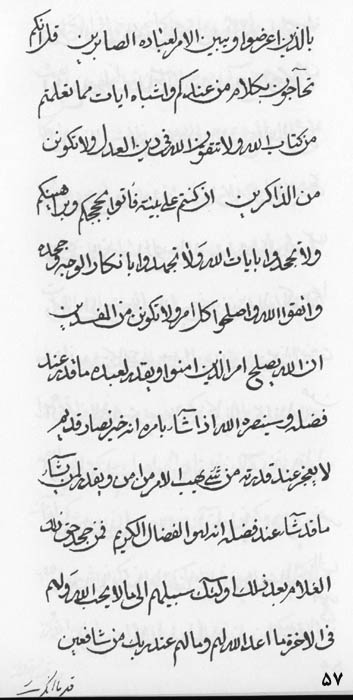 بالذین اعرضوا و یبین الامر لعباده الصابرین قل انکم
تحاجون بکلام من عندکم و اشباه ایات مما تعلمتم
من کتاب الله ولا تتقون الله فی دین العدل ولا تکونن
من الذاکرین ان کنتم علی بینة فأتوا بحججکم و براهینکم
ولا تجحدوا بایات الله ولا تجحدوا بانکار الوجه
واتقوا الله و اصلحوا کل امر ولا تکونن من المفسدین
ان الله یصلح امر الذین امنوا و یقدر لعباده ما قدر عند
فضله و سینصره الله اذا شاء بامره انه خیر نصار قدیم
لا یعجز عند قدرته من شیء یهب الامر من امن و یقدر لمن یشاء
ما قد شاء عند فضله انه لهو الفضال الکریم فمن جحد حق
الغلام بعد ذلک اولئک سبیلهم الی ما لا یحب الله ولهم
فی الاخرة ما اعد الله لهم و ما لهم عند ربک من شافعین
۵۷